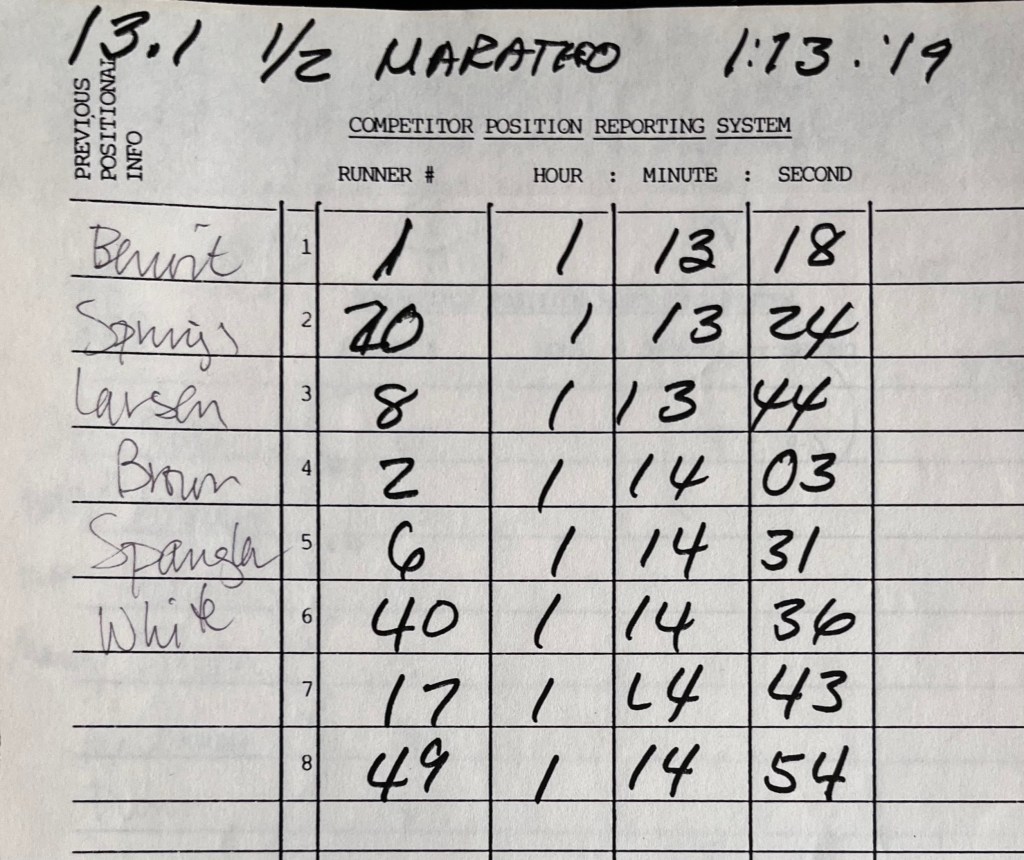 13.1 1/2 MARATHO 1:13.:19
PREVIOUS
POSITIONAL
INFO
COMPETITOR POSITION REPORTING SYSTEM
RUNNER # HOUR : MINUTE : SECOND
Benoit 1 1 1 13 18
Springs 2 20 1 13 24
Larsen 3 8 1 13 44
Brown 4 2 1 14 03
Spangler 5 6 1 14 31
White 6 40 1 14 36
7 17 1 14 43
8 49 1 14 54